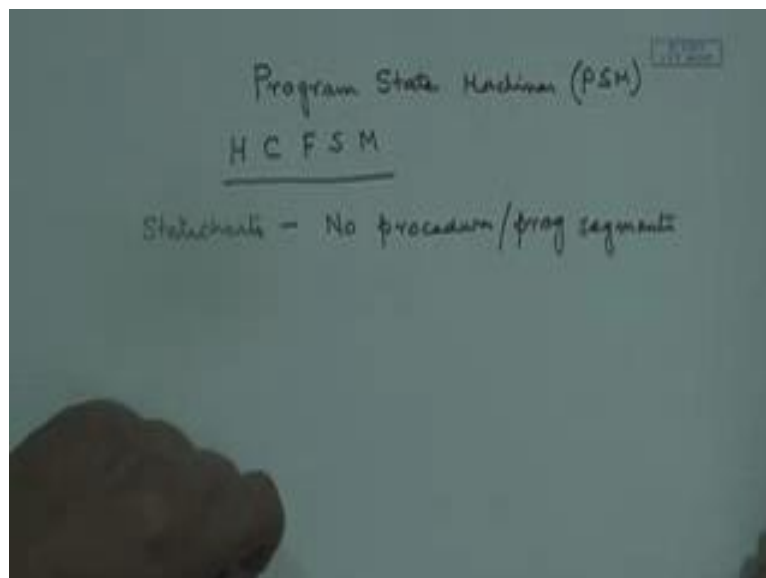 Program State Machines (PSM)
H C FSM
Statecharts - No procedures/prog segments